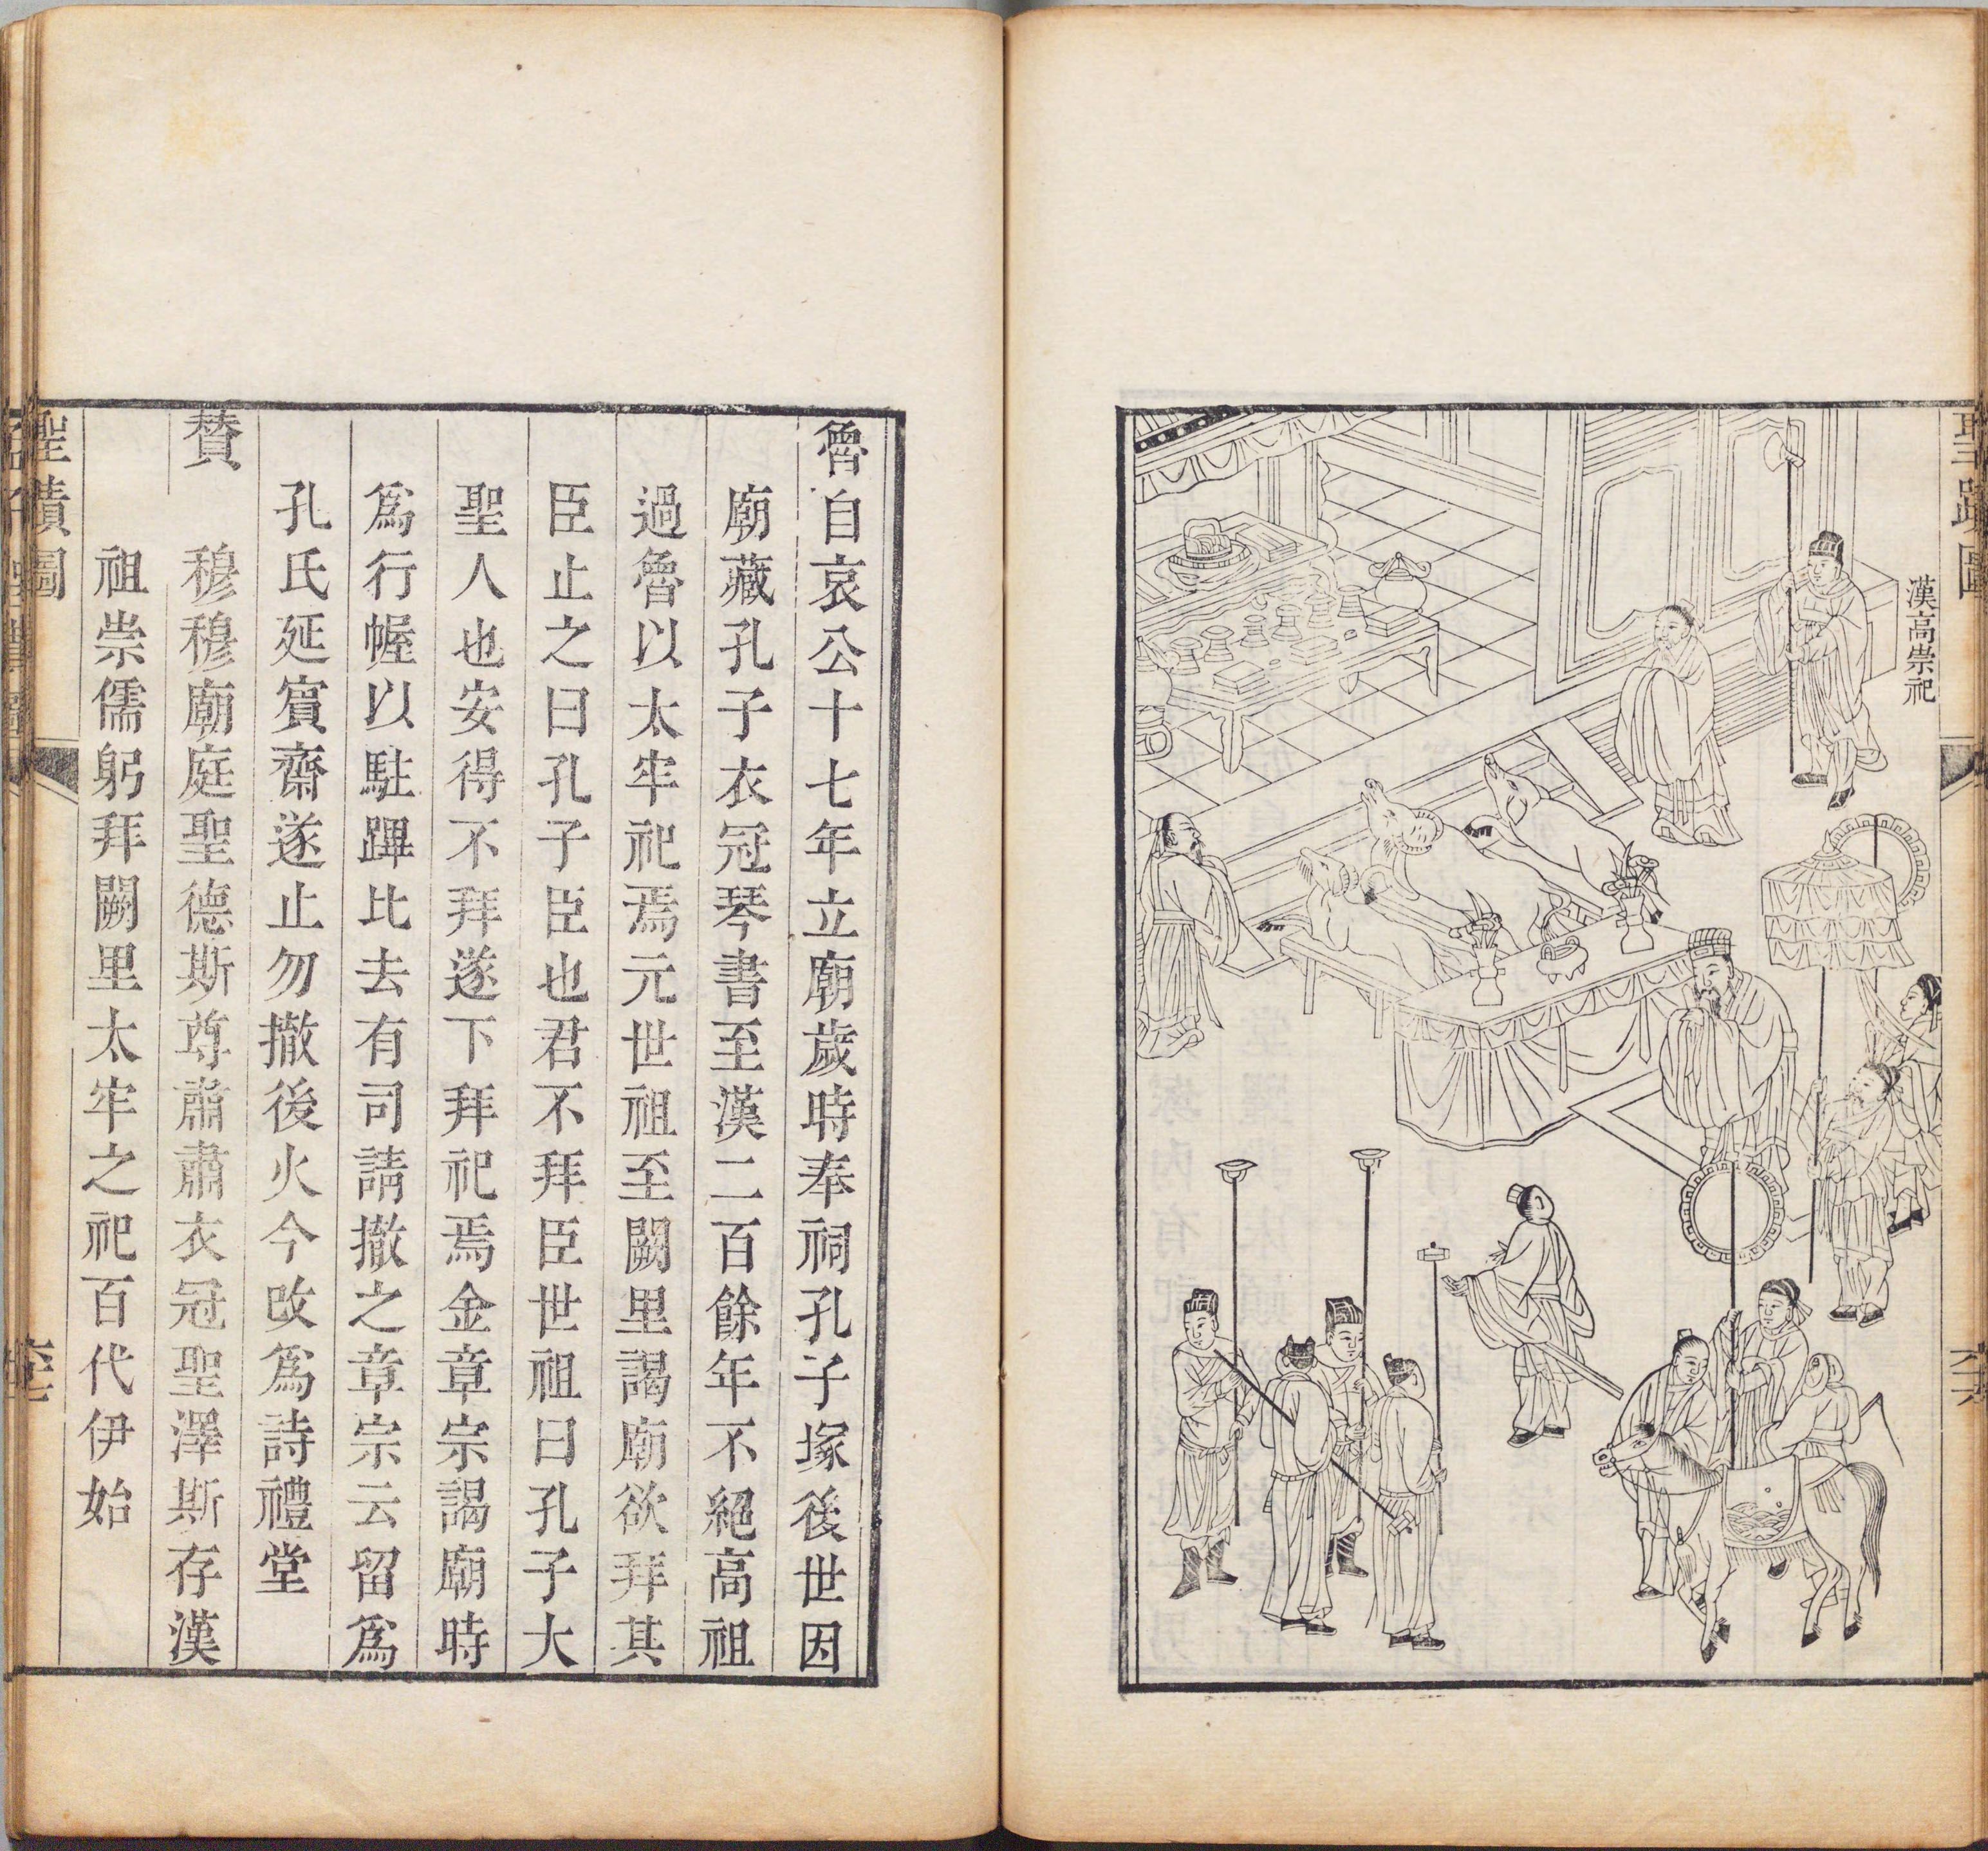 聖蹟圖
漢高崇祀
六六
魯自哀公十七年立廟歲時奉祠孔子塚後世因
廟藏孔子衣冠琴書至漢二百餘年不絕高祖
過魯以太牢祀焉元世祖至闕里謁廟欲拜其
臣止之曰孔子臣也君不拜臣世祖曰孔子大
聖人也安得不拜遂下拜祀焉金章宗謁廟時
爲行幄以駐蹕比去有司請撤之章宗云留爲
孔氏延賓齋遂止勿撤後火今改爲詩禮堂
贊
穆穆廟庭聖德斯尊肅肅衣冠聖澤斯存漢
祖崇儒躬拜闕里太牢之祀百代伊始
聖蹟圖